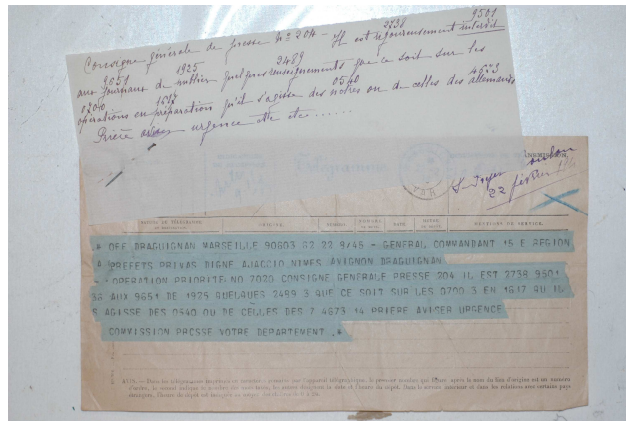 2738 9501
Consigne générale de presse Nº 204 - Il est rigoureusement interdit
9651 1925 2489
aux journaux de publier quelques renseignements que ce soit sur les
0700 1617 0540 4673
opérations en préparation qu'il s'agisse des nôtres ou de celles des allemands
Prière urgence etc etc......
VAR
22 février
ORIGINE. NUMÉRO DATE MENTIONS DE SERVICE.
* OFF DRAGUIGNAN MARSEILLE 90603 62 22 9/45 - GENERAL COMMANDANT 15 E REGION
A PREFETS PRIVAS DIGNE AJACCIO NIMES AVIGNON DRAGUIGNAN
- OPERATION PRIORITE NO 7020 CONSIGNE GENERALE PRESSE 204 IL EST 2738 9501
36 AUX 9651 DE 1925 QUELQUES 2489 3 QUE CE SOIT SUR LES 0700 3 EN 1617 QU IL
S AGISSE DES 0540 OU DE CELLES DES 7 4673 14 PRIERE AVISER URGENCE
COMMISSION PRESSE VOTRE DEPARTEMENT .*